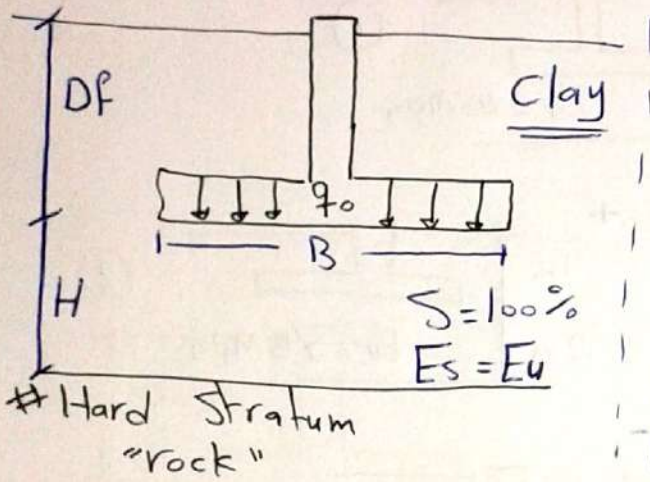 Df
Clay
q₀
B
H
S=100%
Es = Eu
# Hard Stratum
"rock"